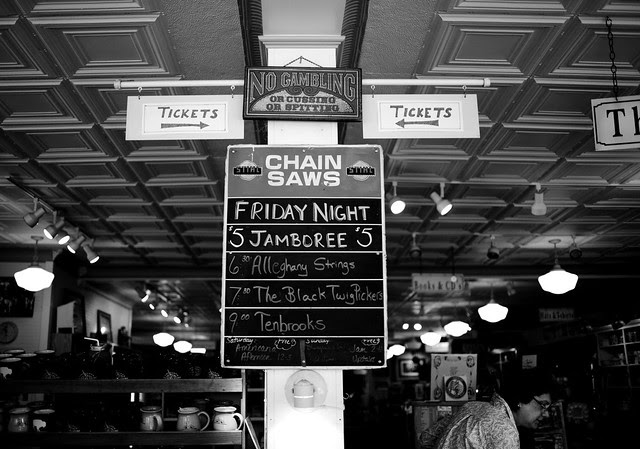 NO GAMBLING
OR CUSSING
OR SPITTING
TICKETS
TICKETS
Th
CHAIN
SAWS
STIHL
STIHL
FRIDAY NIGHT
$5 JAMBOREE $5
6 30 Alleghany Strings
7 30 The Black Twig Pickers
9 00 Tenbrooks
Saturday FREE Sunday FREE
Americana
Afternoon 12-5
Books & CD's